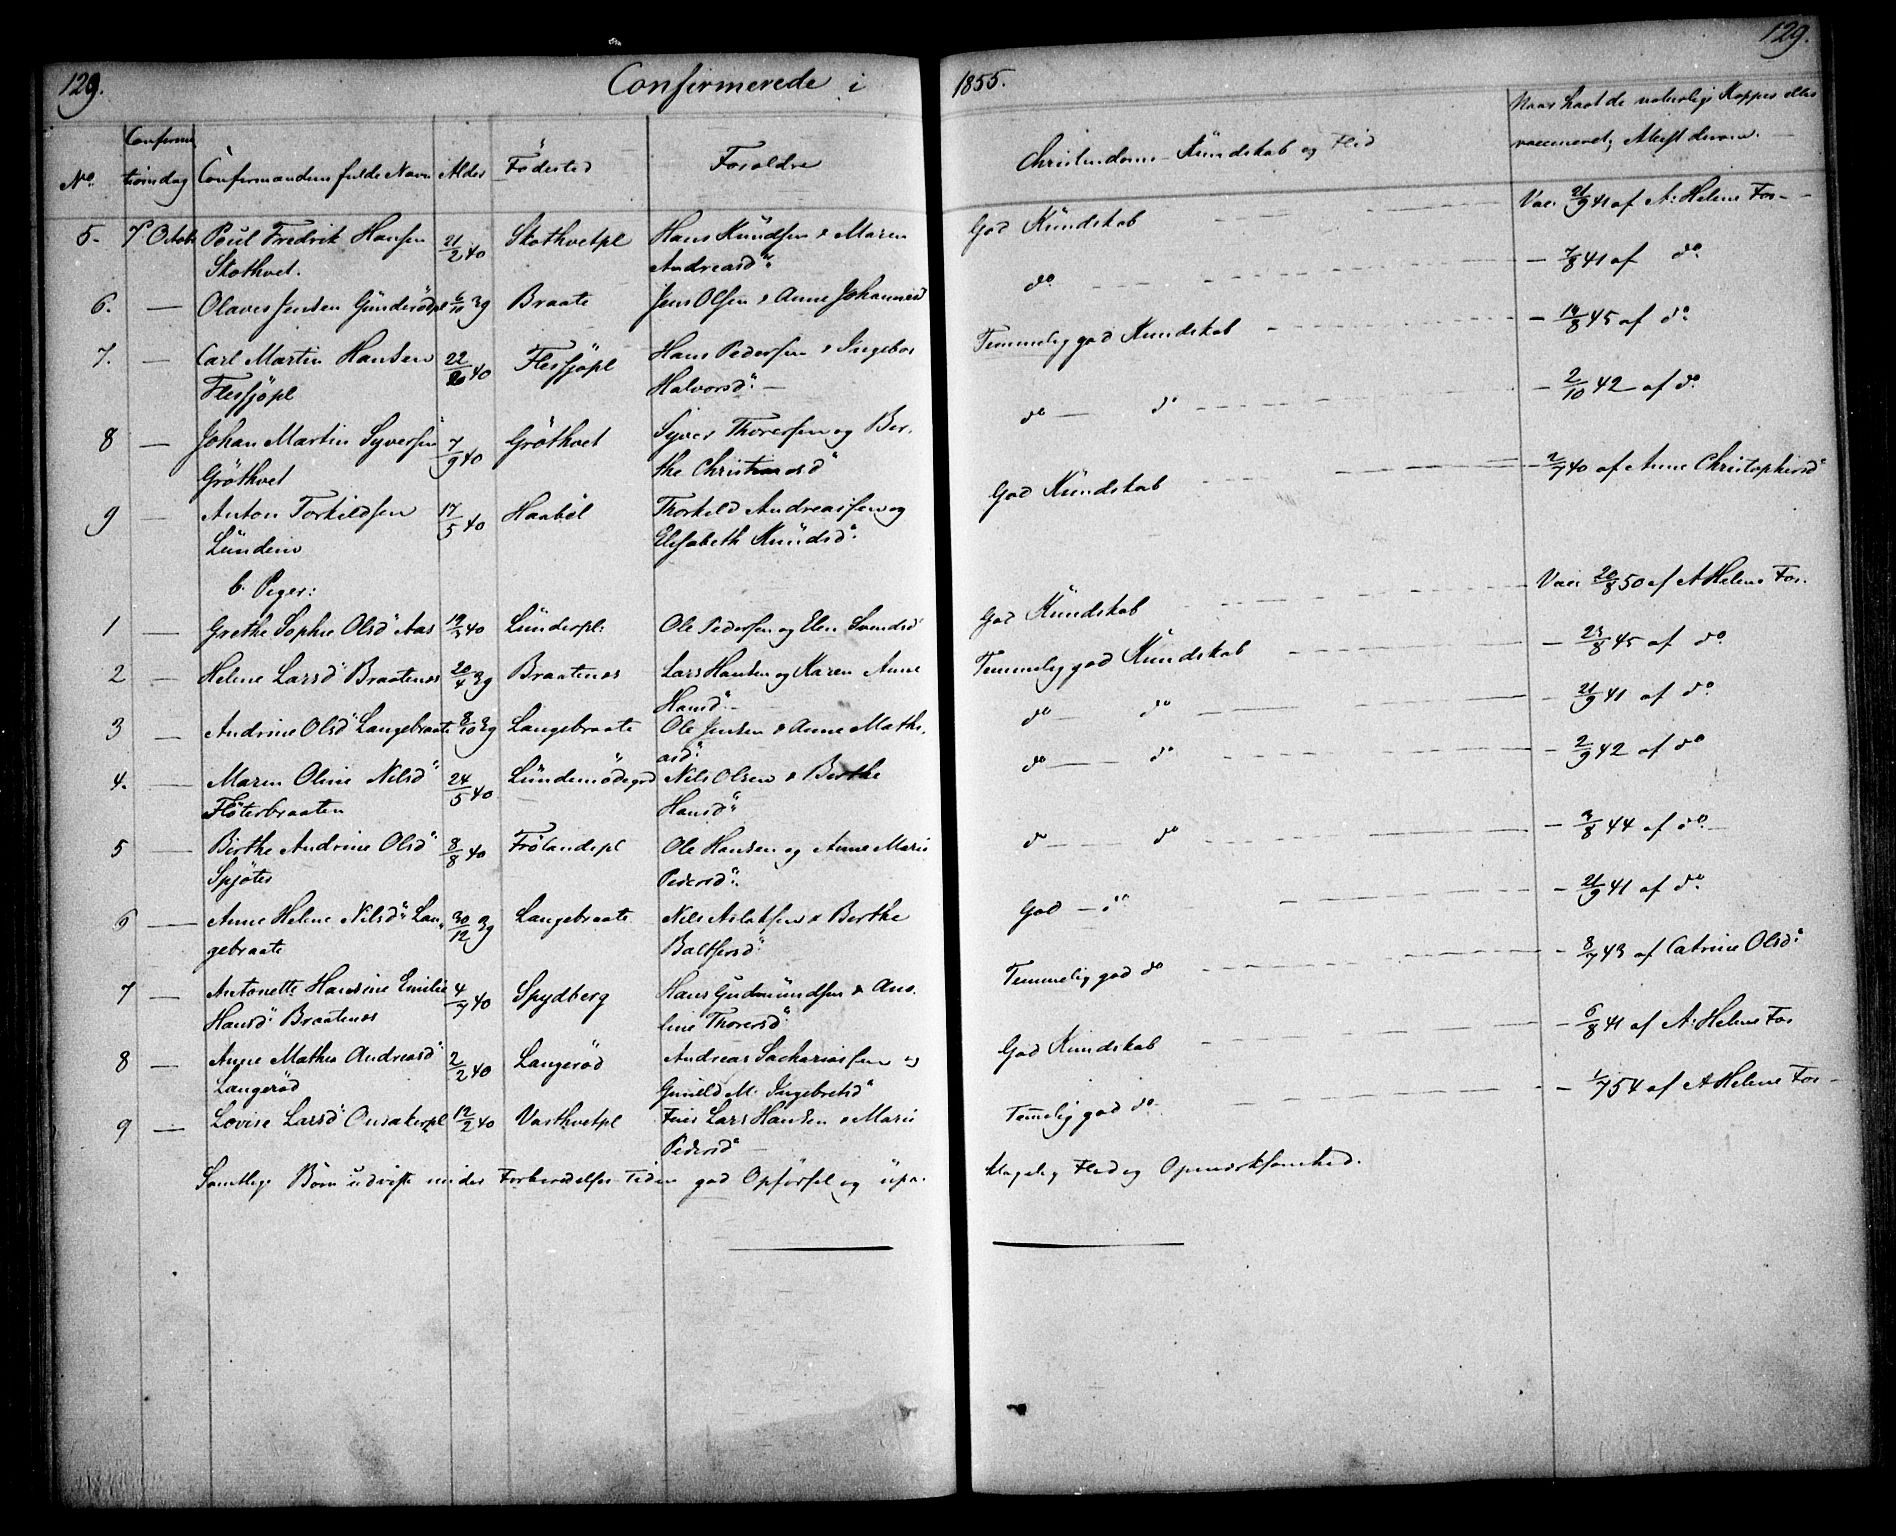 129. Confirmerede i 1855. 129.
No. Confirmationsdag Confirmandens fulde Navn Alder Födested Forældre Christendoms-Kundskab og Flid Naar havt de naturlige Kopper eller
vaccineret, Attest derom.
5. 7 Octob Poul Fredrik Hansen 21/2 40 Skothvetpl Hans Knudsen & Maren God Kundskab Vac. 21/9 41 af A. Helene Fos
Skothvet. Andreasd.
6. — Olaves Jensen Gunderödpl 6/10 39 Braate Jens Olsen & Anne Johannesd do — 7/8 41 af do
7. — Carl Martin Hansen 22/ 40 Flesjöpl Hans Pedersen & Ingebor Temmelig god Kundskab — 19/8 45 af do
Flesjöpl Halvorsd. —
8 — Johan Martin Syversen 7/9 40 Gröthvet Syver Thoresen og Ber- do — do — 2/10 42 af do
Gröthvet the Christiansd
9 — Anton Torkildsen 17/5 40 Haaböl Thorkild Andreassen og God Kundskab — 2/7 40 af Anne Christophersd
Lundem Elisabeth Knudsd.
b. Piger:
1 — Grethe Sophie Olsd Aas 19/3 40 Lunderpl: Ole Pedersen og Elen Svendsd God Kundskab Vac. 20/8 50 af A Helene Fos.
2 — Helene Larsd Braatenes 20/4 39 Braatenes Lars Hansen og Karen Anne Temmelig god Kundskab — 23/8 45 af do
Hansd. —
3 — Andrine Olsd Langebraate 8/10 39 Langebraate Ole Jensen & Anne Mathi- do — do — 21/9 41 af do
asd.
4. — Maren Oline Nilsd 24/5 40 Lundemödegrd Nils Olsen & Berthe do — do — 2/9 42 af do
Flöterbraaten Hansd
5 Birthe Andrine Olsd 8/8 40 Frölandspl Ole Hansen og Anne Marie do — do — 3/8 44 af do —
Spjöter Pedersd.
6 — Anne Helene Nilsd Lan- 30/12 39 Langebraate Nils Aslaksen & Berthe God — do — 21/9 41 af do
gebraate Baltsersd.
7 — Antonette Hansine Emilie 4/7 40 Spydberg Hans Gudmundsen & Ano- Temmelig god do — 8/7 43 af Catrine Olsd.
Hansd. Braatenes line Thorersd.
8 — Anne Mathea Andreasd 2/2 40 Langeröd Andreas Sachariassen og God Kundskab — 6/8 41 af A. Helene Fos
Langeröd Gunild M. Ingebretsd
9 — Lovise Larsd Onsakerpl 12/2 40 Vasthvetpl Lars Hansen & Marie Temelig god do — 1/7 54 af A Helene Fos —
Pedersd —
Samtlige Börn udviste under Forberedelses Tiden god Opförsel og upa- klagelig Flid og Opmærksomhed.